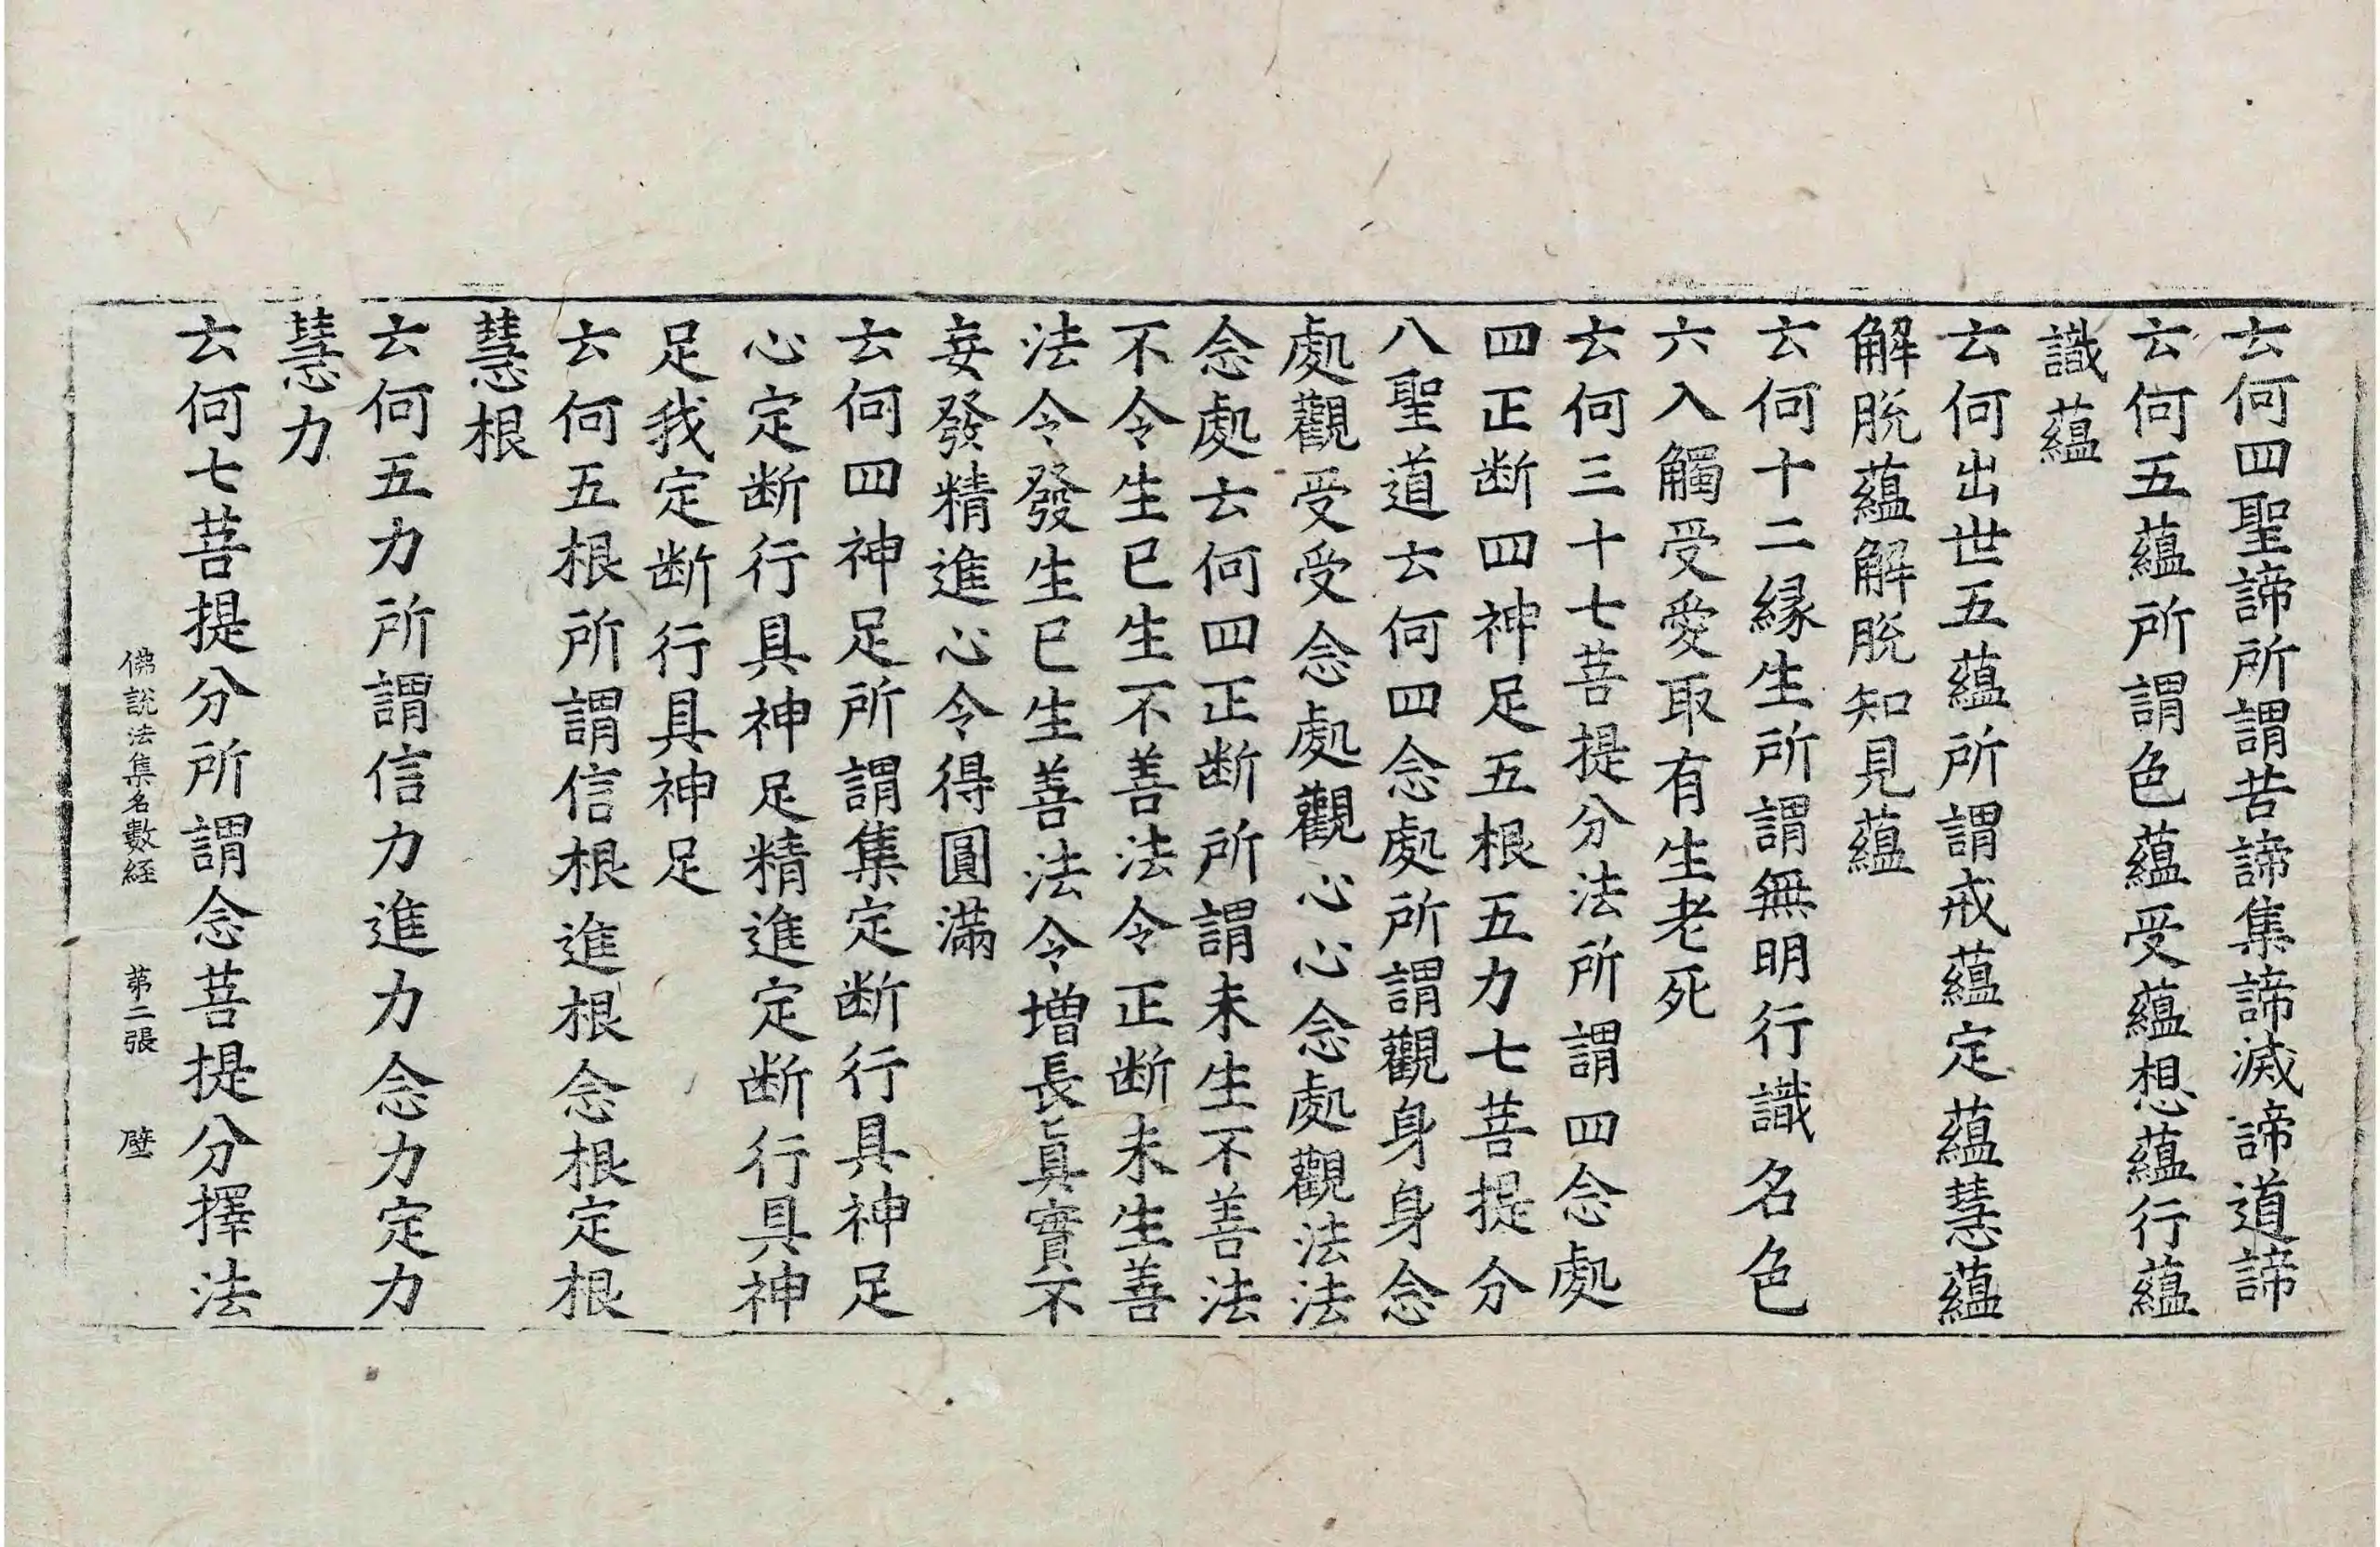 云何四聖諦所謂苦諦集諦滅諦道諦
云何五蘊所謂色蘊受蘊想蘊行蘊
識蘊
云何出世五蘊所謂戒蘊定蘊慧蘊
解脫蘊解脫知見蘊
云何十二緣生所謂無明行識名色
六入觸受愛取有生老死
云何三十七菩提分法所謂四念處
四正断四神足五根五力七菩提分
八聖道云何四念處所謂觀身身念
處觀受受念處觀心心念處觀法法
念處云何四正断所謂未生不善法
不令生已生不善法令正断未生善
法令發生已生善法令增長眞實不
妄發精進心令得圓滿
云何四神足所謂集定断行具神足
心定断行具神足精進定断行具神
足我定断行具神足
云何五根所謂信根進根念根定根
慧根
云何五力所謂信力進力念力定力
慧力
云何七菩提分所謂念菩提分擇法
佛說法集名數経 第二張 壁